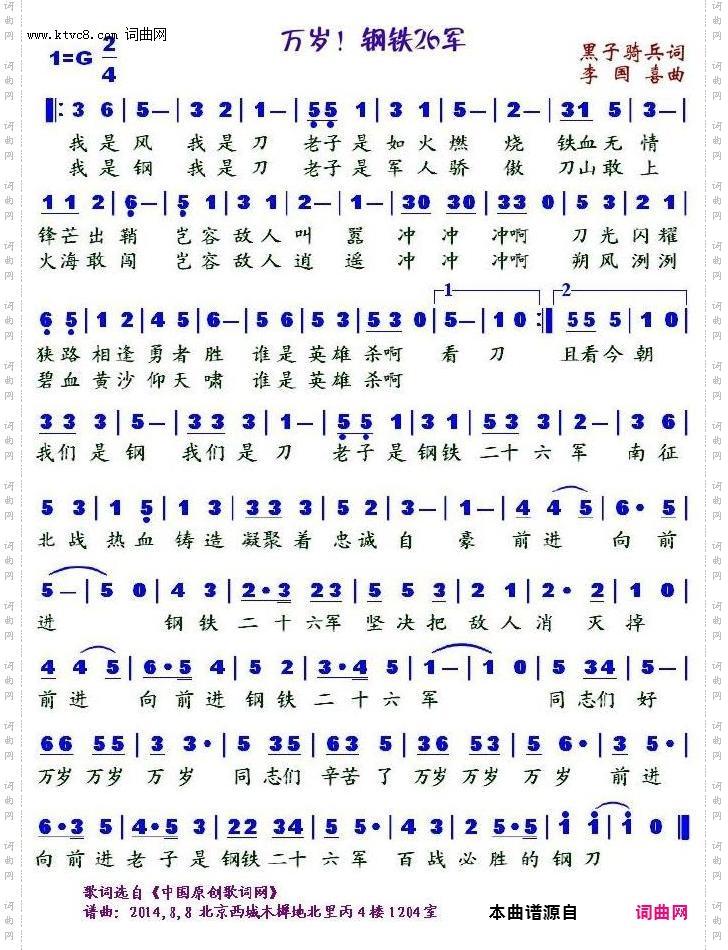 www.ktvc8.com 词曲网
万岁！钢铁26军
1=G 2/4
黑子骑兵词
李国喜曲
‖: 3 6 | 5 — | 3 2 | 1 — | 5̣5̣ 5̣ | 1 3 | 5 — | 2 — | 31 5 | 3 3 |
我是风 我是刀 老子是如火燃 烧 铁血无 情
我是钢 我是刀 老子是军人骄 傲 刀山敢 上
1 1 2 | 6̣ — | 5̣ 1 | 3 1 | 2 — | 1 — | 30 30 | 33 0 | 5 3 | 2 1 |
锋芒出鞘 岂容敌人叫 嚣 冲 冲 冲啊 刀光闪耀
火海敢闯 岂容敌人逍 遥 冲 冲 冲啊 朔风洌洌
1 2
6̣ 5̣ | 1 2 | 4 5 | 6 — | 5 6 | 5 3 | 53 0 | 5 — | 1 0 :‖ 55 5 | 1 0 |
狭路相逢勇者胜 谁是英雄杀啊 看 刀 且看今 朝
碧血黄沙仰天啸 谁是英雄杀啊
33 3 | 5 — | 33 3 | 1 — | 5̣5̣ 1 | 3 1 | 53 3 | 2 — | 3 6 |
我们是 钢 我们是 刀 老子是钢铁 二十六 军 南征
5 3 | 1 5̣ | 1 3 | 33 3 | 5 2 | 3 — | 1 — | 4 4 5 | 6 · 5 |
北战 热血 铸造 凝聚着 忠诚 自 豪 前进 向前
5 — | 5 0 | 4 3 | 2·3 23 | 5 5 3 | 2 1 | 2 · | 2 0 |
进 钢铁 二十六军 坚决把 敌人消 灭掉
4 4 5 | 6·5 4 | 5 2 | 3·4 5 | 1 — | 1 0 | 5 34 | 5 — |
前进 向前进钢铁 二十六 军 同志们 好
66 55 | 3 3 · | 5 35 | 63 5 | 36 53 | 5 6 · | 4 5 |
万岁万岁 万岁 同志们 辛苦了 万岁万岁 万岁 前进
6·3 5 | 4·5 3 | 22 34 | 5 3 | 2 2 | 5·5 | 1 | 1 0 ‖
向前进老子是钢铁二十六军 百战必胜的钢刀
歌词选自《中国原创歌词网》
谱曲：2014,8,8 北京西城木樨地北里丙4楼1204室
本曲谱源自 词曲网